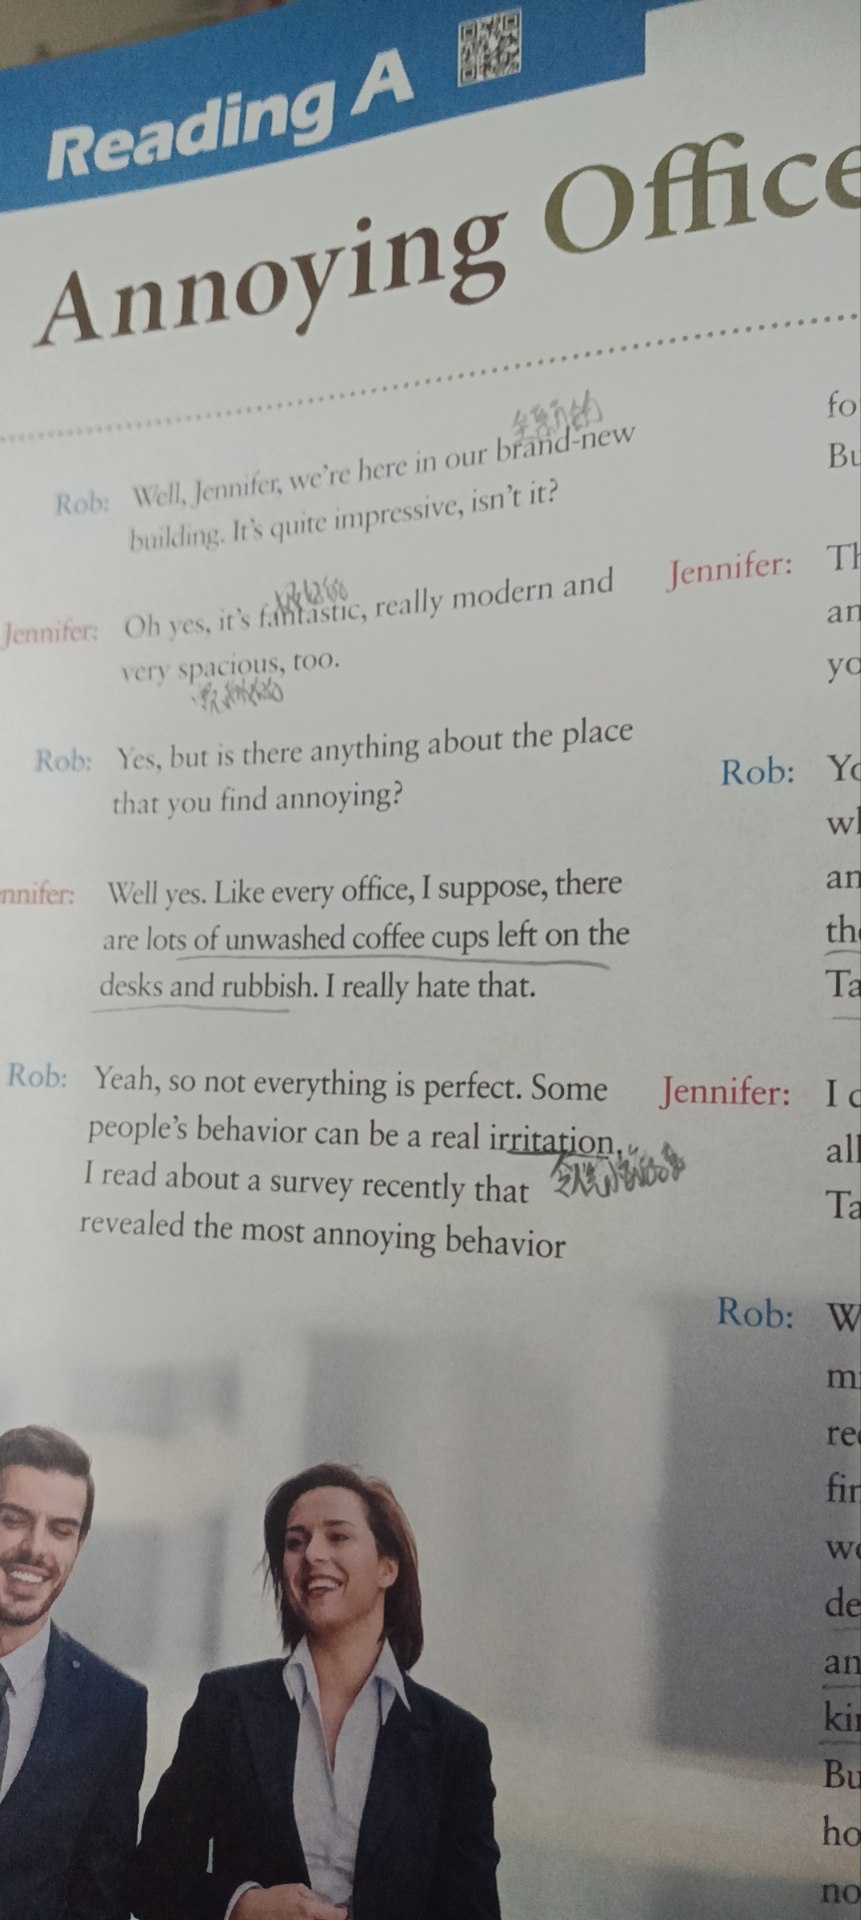 Reading A
Annoying Office
全新的
Rob: Well, Jennifer, we're here in our brand-new
building. It's quite impressive, isn't it?
Jennifer: Oh yes, it's fantastic, really modern and
very spacious, too.
Rob: Yes, but is there anything about the place
that you find annoying?
nnifer: Well yes. Like every office, I suppose, there
are lots of unwashed coffee cups left on the
desks and rubbish. I really hate that.
Rob: Yeah, so not everything is perfect. Some
people's behavior can be a real irritation.
I read about a survey recently that
revealed the most annoying behavior
fo
Bu
Jennifer: Th
an
yo
Rob: Yo
wh
an
the
Ta
Jennifer: I c
all
Ta
Rob: W
m
re
fin
wo
de
an
kin
Bu
ho
no